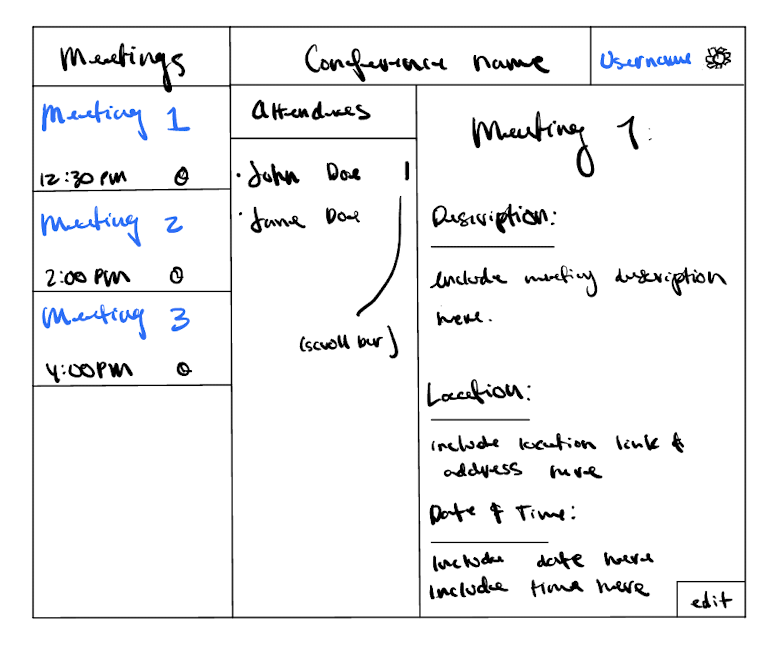 Meetings
Conference name
Username
Meeting 1
12:30 PM
Meeting 2
2:00 PM
Meeting 3
4:00 PM
Attendees
• John Doe
• Jane Doe
(scroll bar)
Meeting 1:
Description:
include meeting description
here.
Location:
include location link &
address here
Date & Time:
Include date here
Include time here
edit